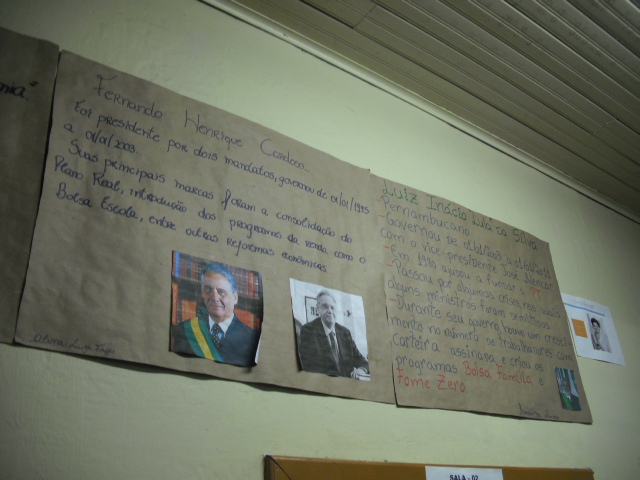 Fernando Henrique Cardoso
Foi presidente por dois mandatos, governou de 01/01/1995
a 01/01/2003.
Suas principais marcas foram a consolidação do
Plano Real, introdução dos programas da renda como o
Bolsa Escola, entre outras reformas econômicas
Luiz Inácio Lula da Silva
Pernambucano
- Governou de
com o vice-presidente José Alencar
- Em 1980 ajudou a fundar o PT
- Passou por algumas crises nas quais
alguns ministros foram
- Durante seu governo houve um cresci
mento no número de trabalhadores com
carteira assinada e criou os
programas Bolsa Família e
Fome Zero
SALA - 02